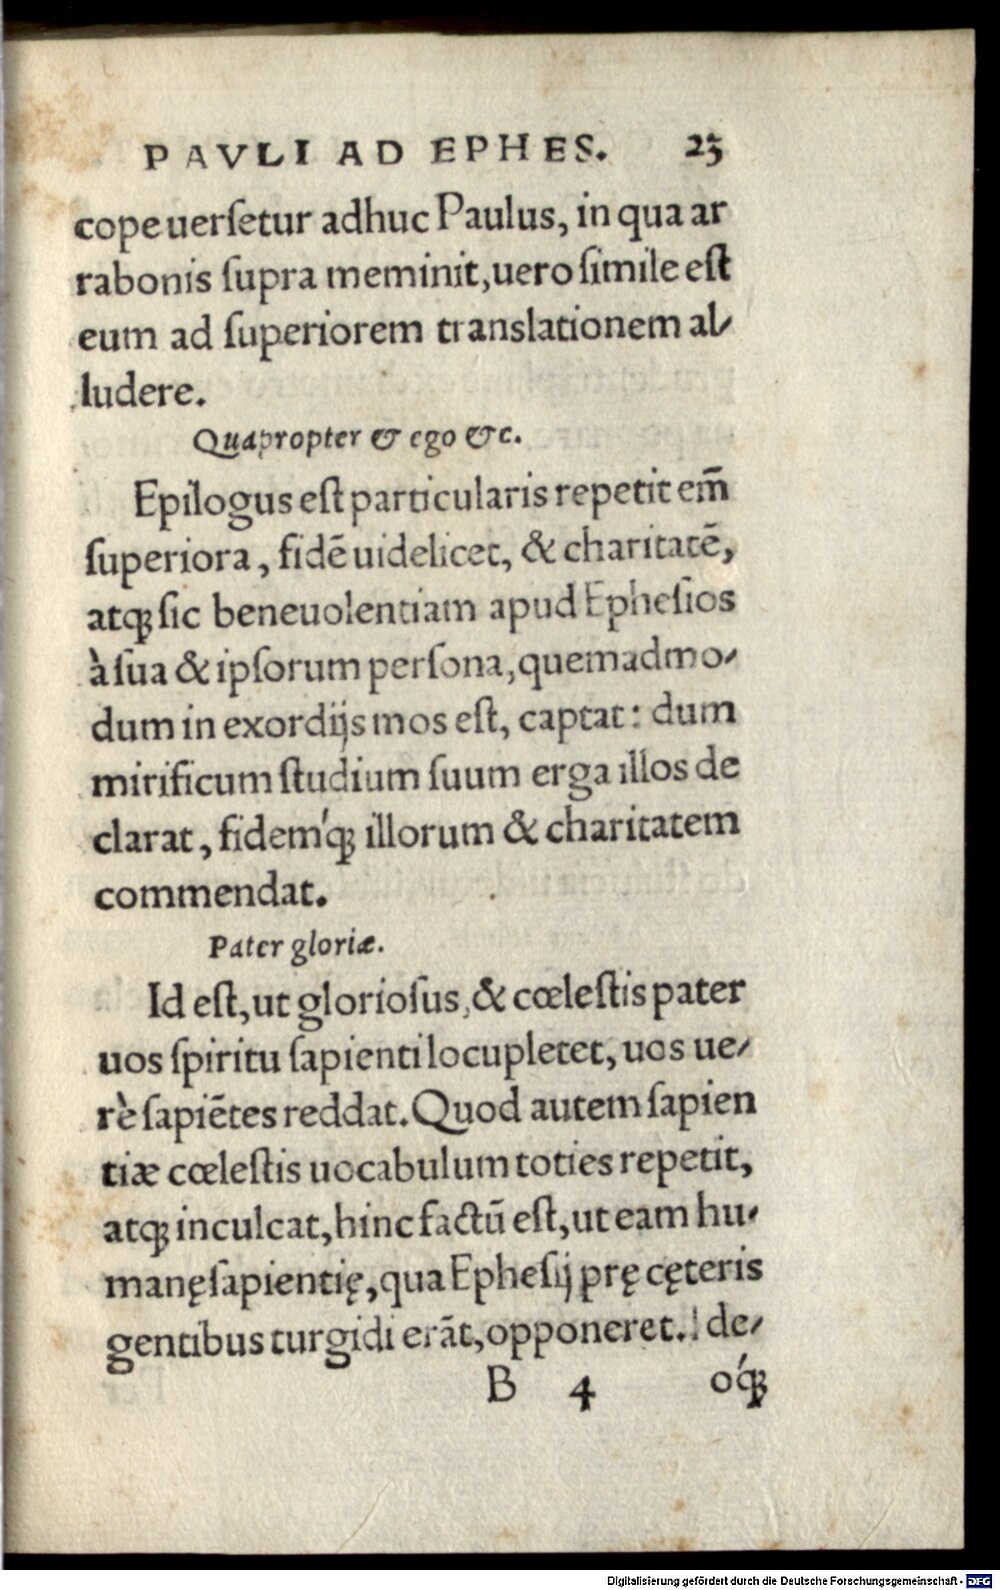 PAVLI AD EPHES. 23
cope uerſetur adhuc Paulus, in qua ar
rabonis ſupra meminit, uero ſimile eſt
eum ad ſuperiorem translationem al⸗
ludere.
Quapropter & ego &c.
Epilogus eſt particularis repetit em̄
ſuperiora, fidē uidelicet, & charitatē,
atqꝫ ſic beneuolentiam apud Epheſios
à ſua & ipſorum perſona, quemadmo⸗
dum in exordijs mos eſt, captat: dum
mirificum ſtudium ſuum erga illos de
clarat, fidemq́ꝫ illorum & charitatem
commendat.
Pater gloriæ.
Id eſt, ut glorioſus, & cœleſtis pater
uos ſpiritu ſapienti locupletet, uos ue⸗
rè ſapiētes reddat. Quod autem ſapien
tiæ cœleſtis uocabulum toties repetit,
atqꝫ inculcat, hinc factū eſt, ut eam hu⸗
manę ſapientię, qua Epheſij prę cęteris
gentibus turgidi erāt, opponeret. Ide⸗
B 4 oq́ꝫ
Digitalisierung gefördert durch die Deutsche Forschungsgemeinschaft - DFG